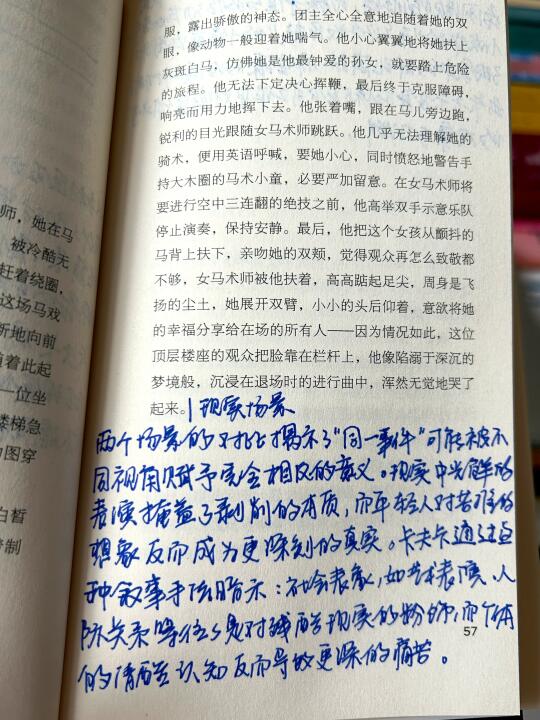 服，露出骄傲的神态。团主全心全意地追随着她的双
眼，像动物一般迎着她喘气。他小心翼翼地将她扶上
灰斑白马，仿佛她是他最钟爱的孙女，就要踏上危险
的旅程。他无法下定决心挥鞭，最后终于克服障碍，
响亮而用力地挥下去。他张着嘴，跟在马儿旁边跑，
锐利的目光跟随女马术师跳跃。他几乎无法理解她的
骑术，便用英语呼喊，要她小心，同时愤怒地警告手
持大木圈的马术小童，必要严加留意。在女马术师将
要进行空中三连翻的绝技之前，他高举双手示意乐队
停止演奏，保持安静。最后，他把这个女孩从颤抖的
马背上扶下，亲吻她的双颊，觉得观众再怎么致敬都
不够，女马术师被他扶着，高高踮起足尖，周身是飞
扬的尘土，她展开双臂，小小的头后仰着，意欲将她
的幸福分享给在场的所有人——因为情况如此，这位
顶层楼座的观众把脸靠在栏杆上，他像陷溺于深沉的
梦境般，沉浸在退场时的进行曲中，浑然无觉地哭了
起来。|现实场景
两个场景的对比揭示了“同一事件”可能被不
同视角赋予完全相反的意义。现实中光鲜的
表演掩盖了剥削的本质，而年轻人对苦难的
想象反而成为更深刻的真实。卡夫卡通过这
种叙事手法暗示：社会表象，如艺术表演、人
际关系等往往是对残酷现实的粉饰，而个体
的清醒认知反而导致更深的痛苦。
57
师，她在马
被冷酷无
赶着绕圈，
这场马戏
断地向前
随着此起
一位坐
楼梯急
力图穿
白皙